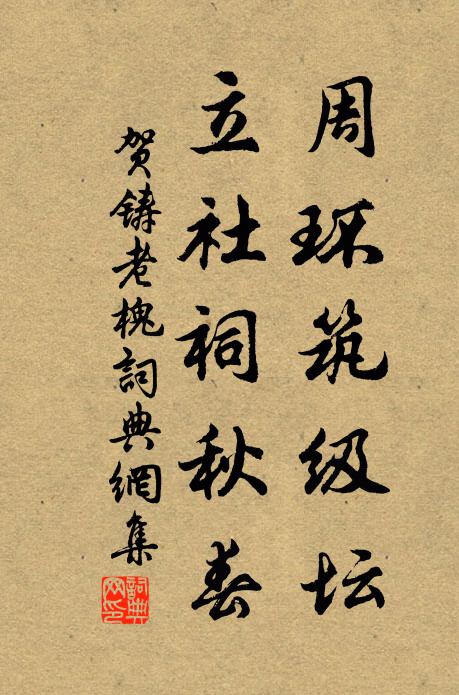 周环筑级坛
立社祠秋春
贺铸老槐詞典網集
詞典网印